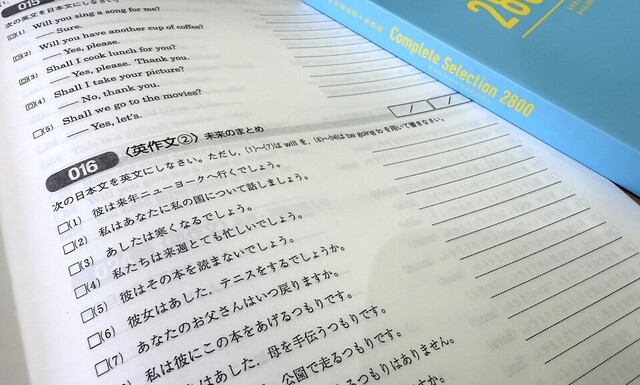 015
次の英文を日本文にしなさい。
□(1) Will you sing a song for me?
── Sure.
□(2) Will you have another cup of coffee?
── Yes, please.
□(3) Shall I cook lunch for you?
── Yes, please. Thank you.
□(4) Shall I take your picture?
── No, thank you.
□(5) Shall we go to the movies?
── Yes, let's.
016 〈英作文②〉未来のまとめ
次の日本文を英文にしなさい。ただし，(1)〜(7)は will を，(8)〜(16)は be going to を用いて書きなさい。
□(1) 彼は来年ニューヨークへ行くでしょう。
□(2) 私はあなたに私の国について話しましょう。
□(3) あしたは寒くなるでしょう。
□(4) 私たちは来週とても忙しいでしょう。
□(5) 彼はその本を読まないでしょう。
□(6) 彼女はあした，テニスをするでしょうか。
□(7) あなたのお父さんはいつ戻りますか。
私は彼にこの本をあげるつもりです。
はあした，母を手伝うつもりです。
公園で走るつもりです。
つもりはありません。
2800
Complete Selection 2800